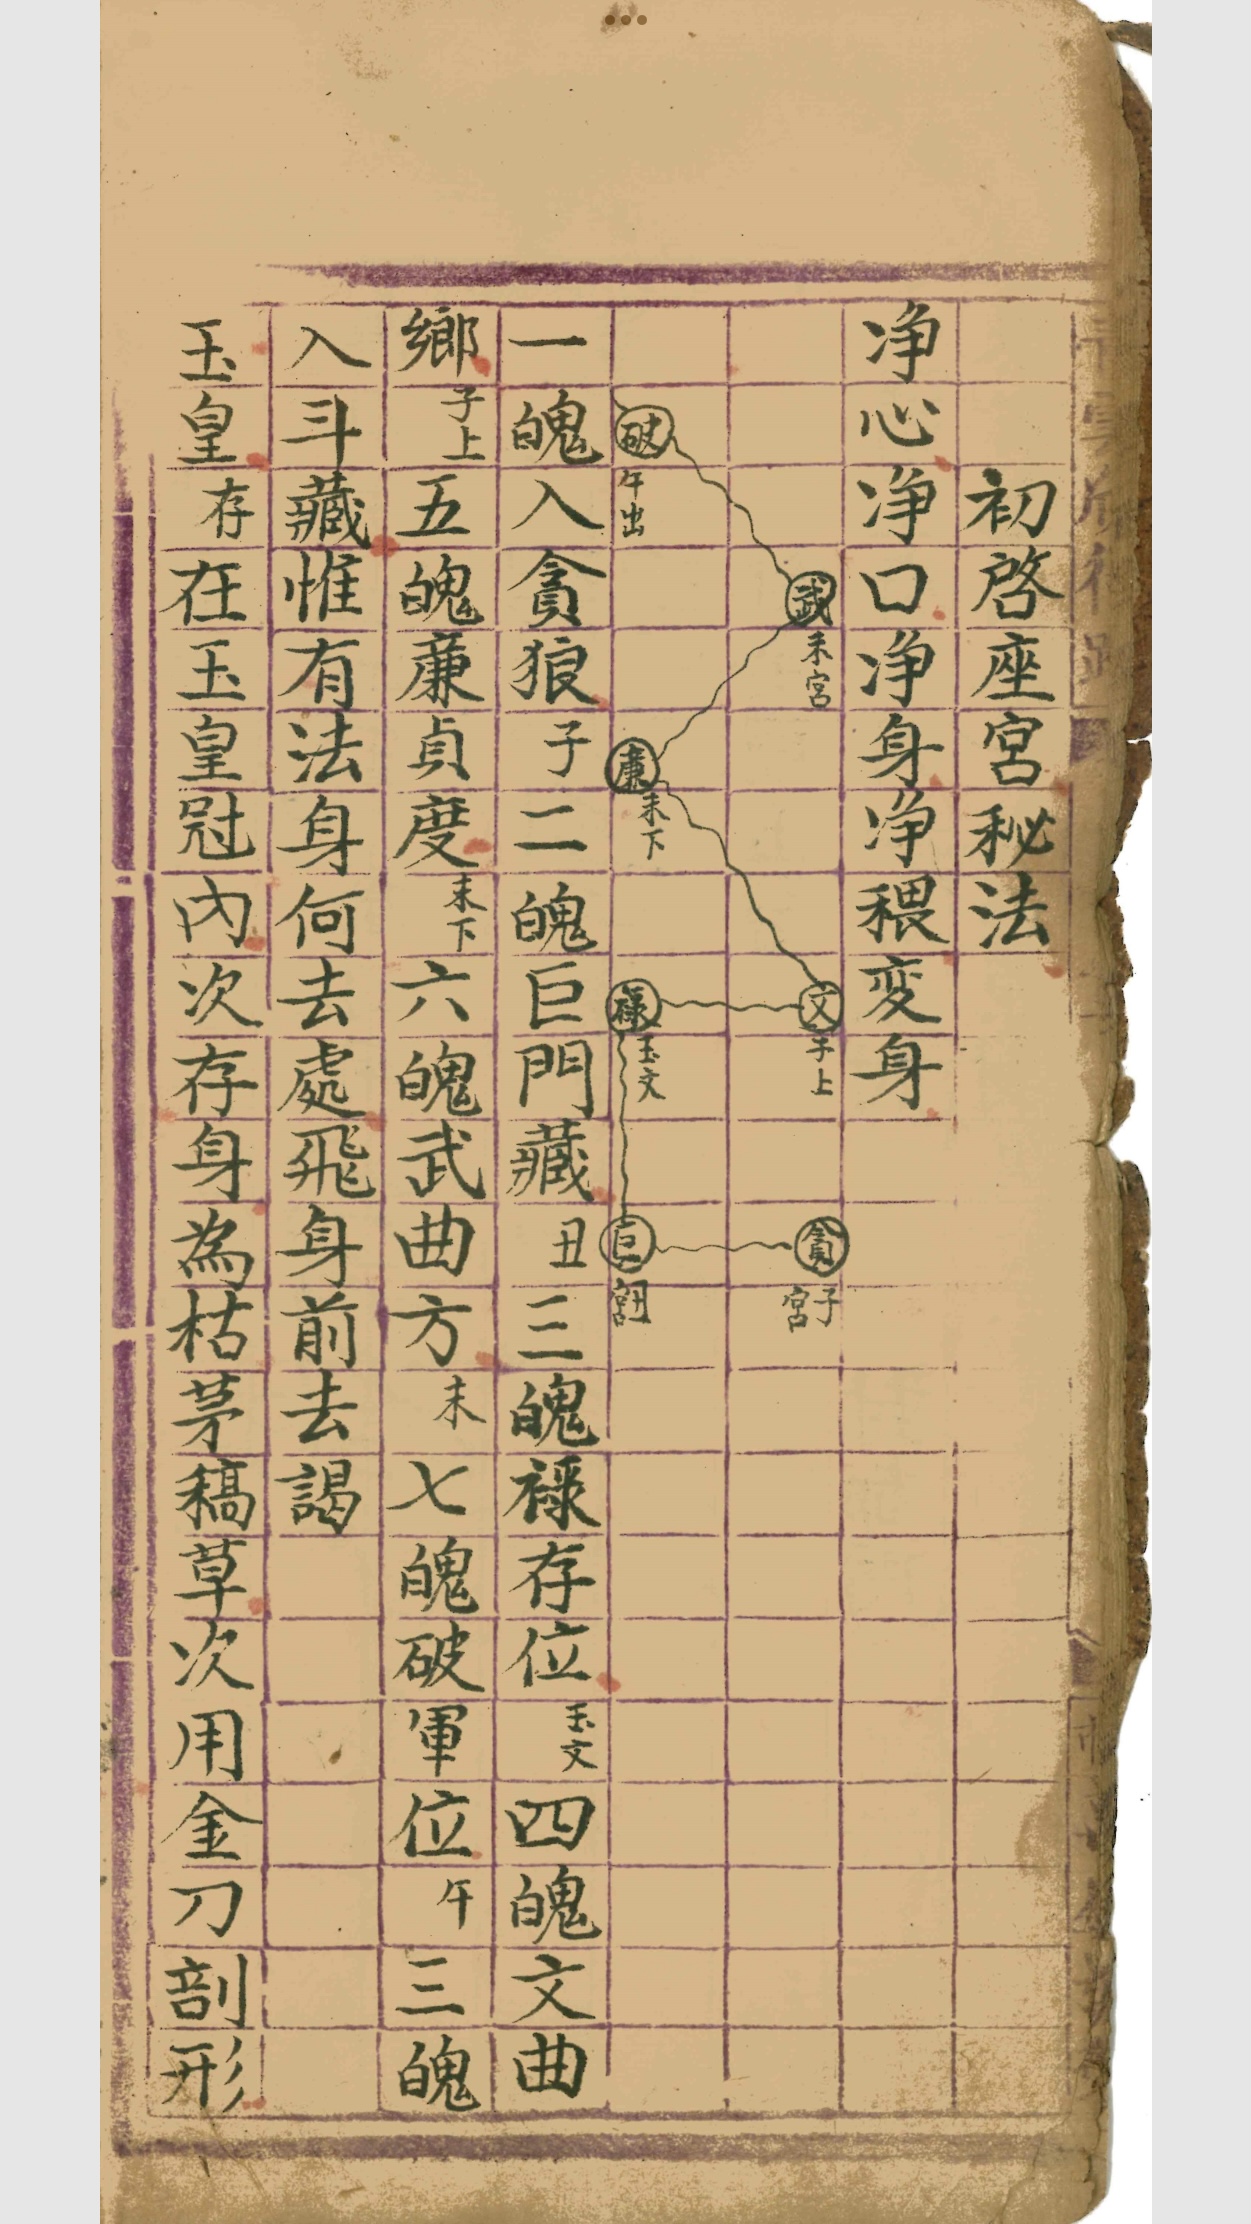 初啓座宮秘法
净心净口净身净穢変身
破
午出
武
未宮
廉
未下
文
子上
禄
玉文
巨
丑宮
貪
子宮
一魄入貪狼子二魄巨門藏丑三魄禄存位玉文四魄文曲
鄉子上五魄廉貞度未下六魄武曲方未七魄破軍位午三魄
入斗藏惟有法身何去處飛身前去謁
玉皇存在玉皇冠內次存身為枯茅稿草次用金刀剖形